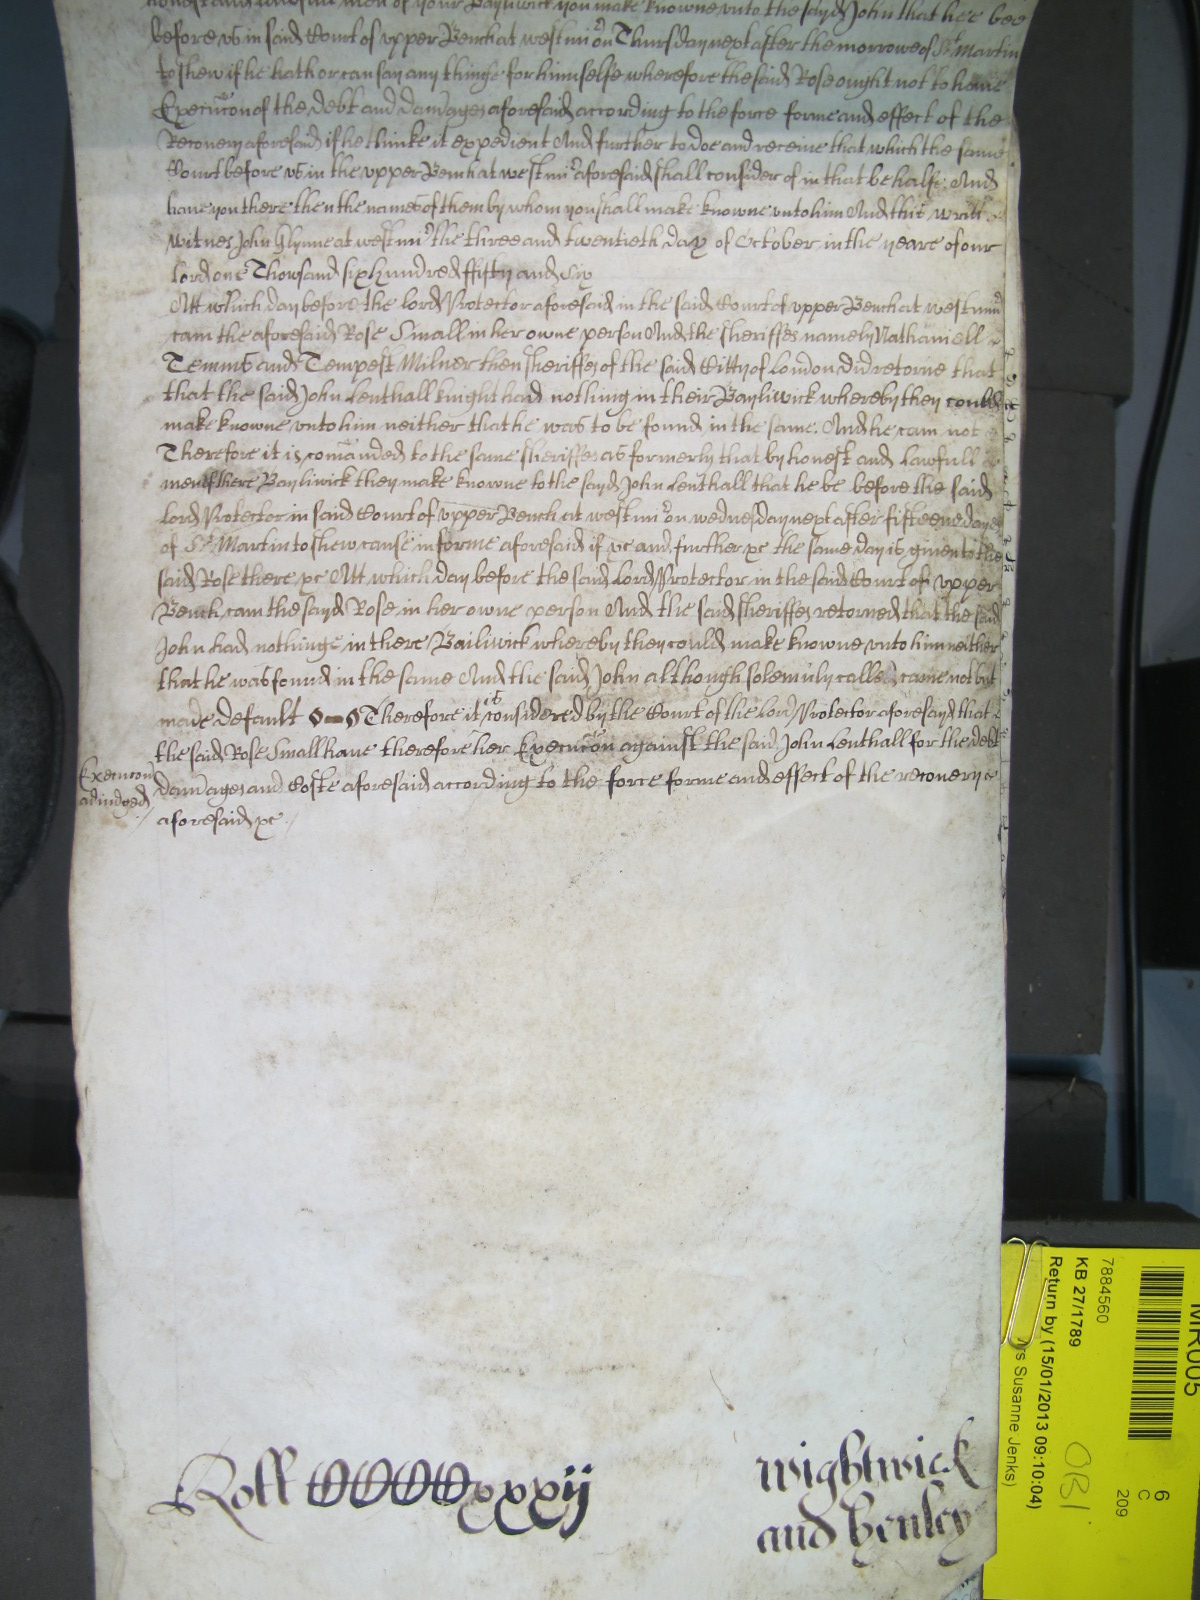 honest and lawfull men of your Bayliwick you make knowne vnto the sayd John that hee bee
before vs in said Court of vpper Bench at westmr on Thursday next after the morrowe of St Martin
to shew if he hath or can say any thinge for himselfe wherefore the said Rose ought not to haue
Execucon of the debt and damages aforesaid according to the force forme and effect of the
Recouery aforesaid if he thinke it expedient And further to doe and receiue that which the same
Court before vs in the vpper Bench at westmr aforesaid shall consider of in that behalfe And
haue you there then the names of them by whom you shall make knowne vnto him And this writt
witnes John Glynne at westmr the three and twentieth day of October in the yeare of our
Lord one Thousand six hundred ffifty and Six
Att which day before the lord Protector aforesaid in the said Court of vpper Bench at westminr
cam the aforesaid Rose Small in her owne person And the sheriffes namely Nathaniell
Temms and Tempest Milner then sheriffes of the said Citty of London did retorne that
that the said John Lenthall knight had nothing in their Bayliwick whereby they could
make knowne vnto him neither that he was to be found in the same. And he cam not
Therefore it is comanded to the same sheriffes as formerly that by honest and Lawfull
men of there Bayliwick they make knowne to the sayd John Lenthall that he be before the said
Lord Protector in said Court of vpper Bench at westmr on wednesday next after fifteene dayes
of St Martin to shew cause in forme aforesaid if &c and further &c the same day is giuen to the
said Rose there &c Att which day before the said Lord Protector in the said Court of vpper
Bench cam the sayd Rose in her owne person And the said sheriffes retorned that the said
John had nothinge in there Bailiwick whereby they could make knowne vnto him neither
that he was found in the same And the said John although solemnly called came not but
made default Therefore it is considered by the Court of the Lord Protector aforesayd that
the said Rose Small haue therefore her Execucon against the said John Lenthall for the debt
Execucon
adiudged
damages and Coste aforesaid according to the force forme and effect of the recouery
aforesaid &c
Roll CCCCxxxij
wightwick
and henley
MR005
7884560
KB 27/1789
Return by (15/01/2013 09:10:04)
Susanne Jenks)
OB1
6
C
209